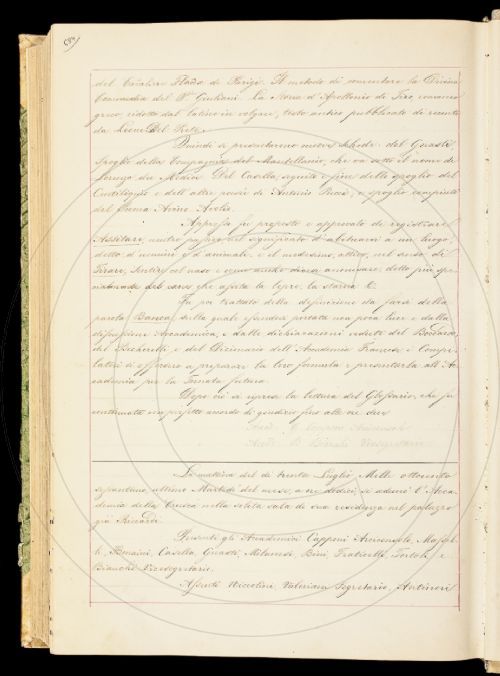 del Cavalier Flaùto di Parigi. Il metodo di commentare la Divina
Commedia del Pr. Giuliani. La Storia d'Apollonio di Tiro, romanzo
greco, ridotto dal latino in volgare, testo antico pubblicato di recente
da Leone Del Prete.
Quindi si presentarono nuove schede del Guasti,
spoglio della Compagnia del Mantellaccio, che va sotto il nome di
Lorenzo dei Medici. Del Casella, seguito e fine dello spoglio del
e dell'altre poesie di Antonio Pucci, e spoglio compiuto
del Poema Avino Avolio.
Appresso fu proposto e approvato di registrare
Assitare, neutro passivo nel significato d'abituarsi a un luogo,
detto d'uomini e d'animali, e il medesimo, attivo, nel senso di
Tirare, Sentire col naso e come anche annusare, detto più spe-
cialmente del cane che afuta la lepre, la starna &.
Fu poi trattato della definizione da farsi della
parola Banca, della quale essendosi portata una poca luce e dalla
definizione Accademica, e dalle dichiarazioni vedute del Boccardo,
del Becherelli e del Dizionario dell'Accademia Francese i Compi-
latori si offersero a preparare la loro formula e presentarla all'Ac-
cademia per la Tornata futura.
Dopo ciò si riprese la lettura del Glossario, che fu
continuato con perfetto accordo di giudizio fino alle ore dieci
Acad. G. Capponi Arciconsolo
Acad. B. Bianchi Vicesegretario
La mattina del dì trenta Luglio Mille ottocento
sessantuno, ultimo Martedì del mese, a ore dodici, si adunò l'Acca-
demia della Crusca nella solita sala di sua residenza nel palazzo
già Riccardi.
Presenti gli Accademici Capponi Arciconsolo,
Bonaini, Casella, Guasti, Milanesi, Bini, Fraticelli, Tortoli, e
Bianchi Vicesegretario.
Assenti Niccolini, Valeriani Segretario, Antinori